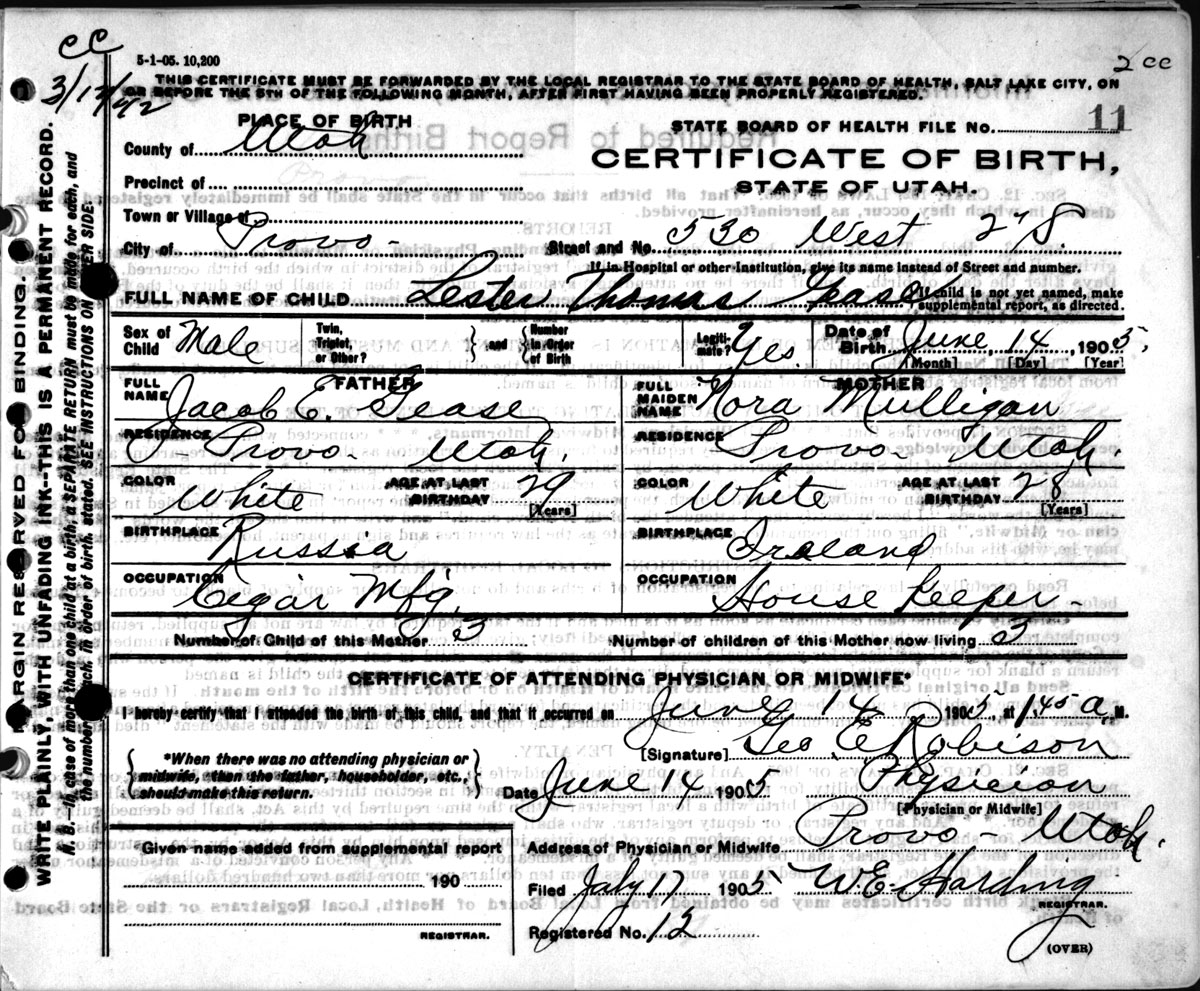 cc
3/12/42
5-1-05. 10,200
2 cc
THIS CERTIFICATE MUST BE FORWARDED BY THE LOCAL REGISTRAR TO THE STATE BOARD OF HEALTH, SALT LAKE CITY, ON
OR BEFORE THE 5TH OF THE FOLLOWING MONTH, AFTER FIRST HAVING BEEN PROPERLY REGISTERED.
PLACE OF BIRTH
STATE BOARD OF HEALTH FILE No. 11
County of Utah
CERTIFICATE OF BIRTH,
Precinct of
STATE OF UTAH.
Town or Village of
City of Provo - Street and No. 530 West 2nd S.
If in Hospital or other Institution, give its name instead of Street and number.
FULL NAME OF CHILD Lester Thomas Gease
child is not yet named, make
supplemental report, as directed.
Sex of Child Male Twin, Triplet, or Other? and Number in Order of Birth Legiti- mate? Yes. Date of Birth June, 14, 1905,
[Month] [Day] [Year]
FATHER
MOTHER
FULL NAME Jacob E. Gease
FULL MAIDEN NAME Nora Mulligan
RESIDENCE Provo Utah.
RESIDENCE Provo - Utah.
COLOR White AGE AT LAST BIRTHDAY 29 [Years]
COLOR White AGE AT LAST BIRTHDAY 28 [Years]
BIRTHPLACE Russia
BIRTHPLACE Ireland
OCCUPATION Cigar Mfg.
OCCUPATION House Keeper -
Number of Child of this Mother 3
Number of children of this Mother now living 3
CERTIFICATE OF ATTENDING PHYSICIAN OR MIDWIFE*
I hereby certify that I attended the birth of this child, and that it occurred on June 14 1905, 1 45 a. M.
*When there was no attending physician or
midwife, then the father, householder, etc.,
should make this return.
[Signature] Geo E Robison
Date June 14 1905 Physician
[Physician or Midwife]
Given name added from supplemental report
190
REGISTRAR.
Address of Physician or Midwife Provo - Utah.
Filed July 17 1905 W E Harding
REGISTRAR.
Registered No. 12
(OVER)
MARGIN RESERVED FOR BINDING.
WRITE PLAINLY, WITH UNFADING INK--THIS IS A PERMANENT RECORD.
N. B.--In case of more than one child at a birth, a SEPARATE RETURN must be made for each, and
the number of each, in order of birth, stated. SEE INSTRUCTIONS ON OTHER SIDE.